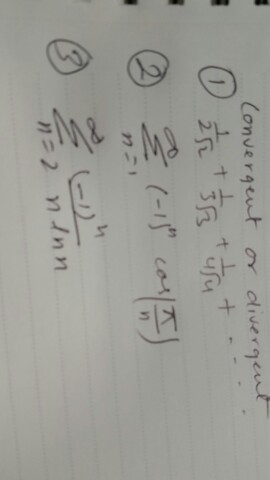 Convergent or divergent
① 1/2√2 + 1/3√3 + 1/4√4 + - - - .
② ∞ Σ n=1 (-1)ⁿ cos(π/n)
③ ∞ Σ n=2 (-1)ⁿ / n ln n